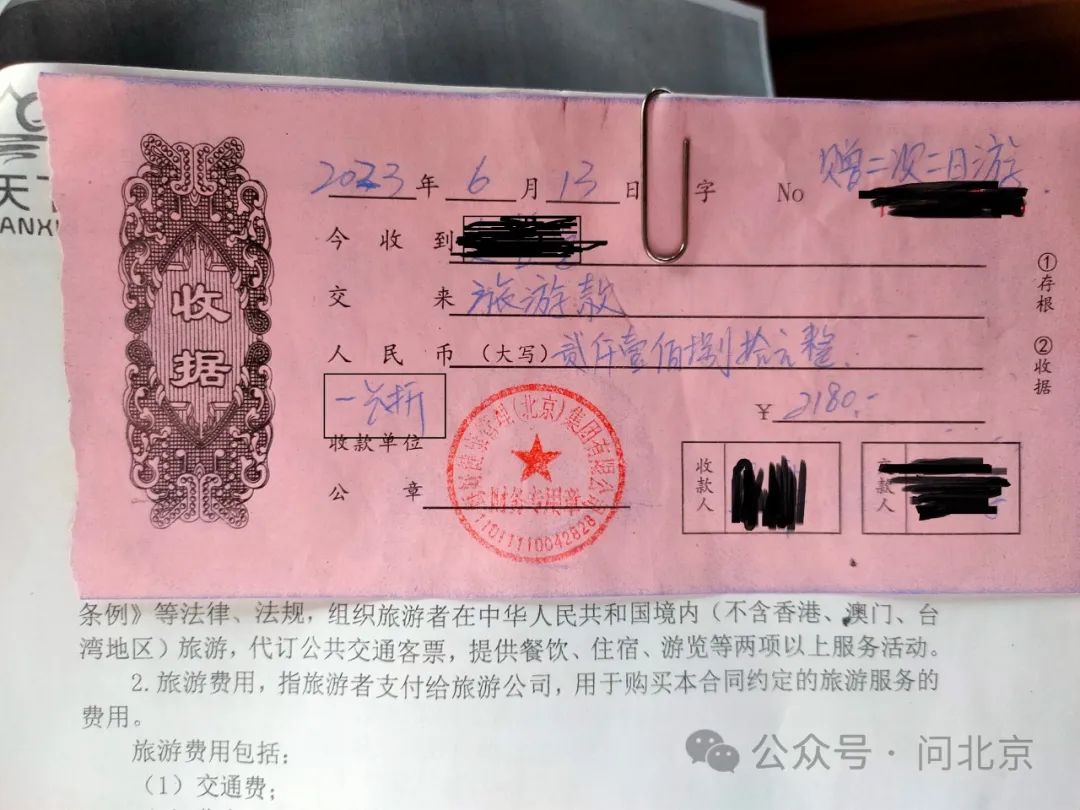 赠二次二日游
2023年 6 月 13 日 字 No
今收到
交来 旅游款
人民币（大写）贰仟壹佰捌拾元整
¥ 2180.-
收款单位
公章
收款人
款人
收据
①存根
②收据
(北京)集团有限公司
财务专用章
11011110042828
天
ANXI
条例》等法律、法规，组织旅游者在中华人民共和国境内（不含香港、澳门、台
湾地区）旅游，代订公共交通客票，提供餐饮、住宿、游览等两项以上服务活动。
2.旅游费用，指旅游者支付给旅游公司，用于购买本合同约定的旅游服务的
费用。
旅游费用包括：
（1）交通费；
公众号·问北京